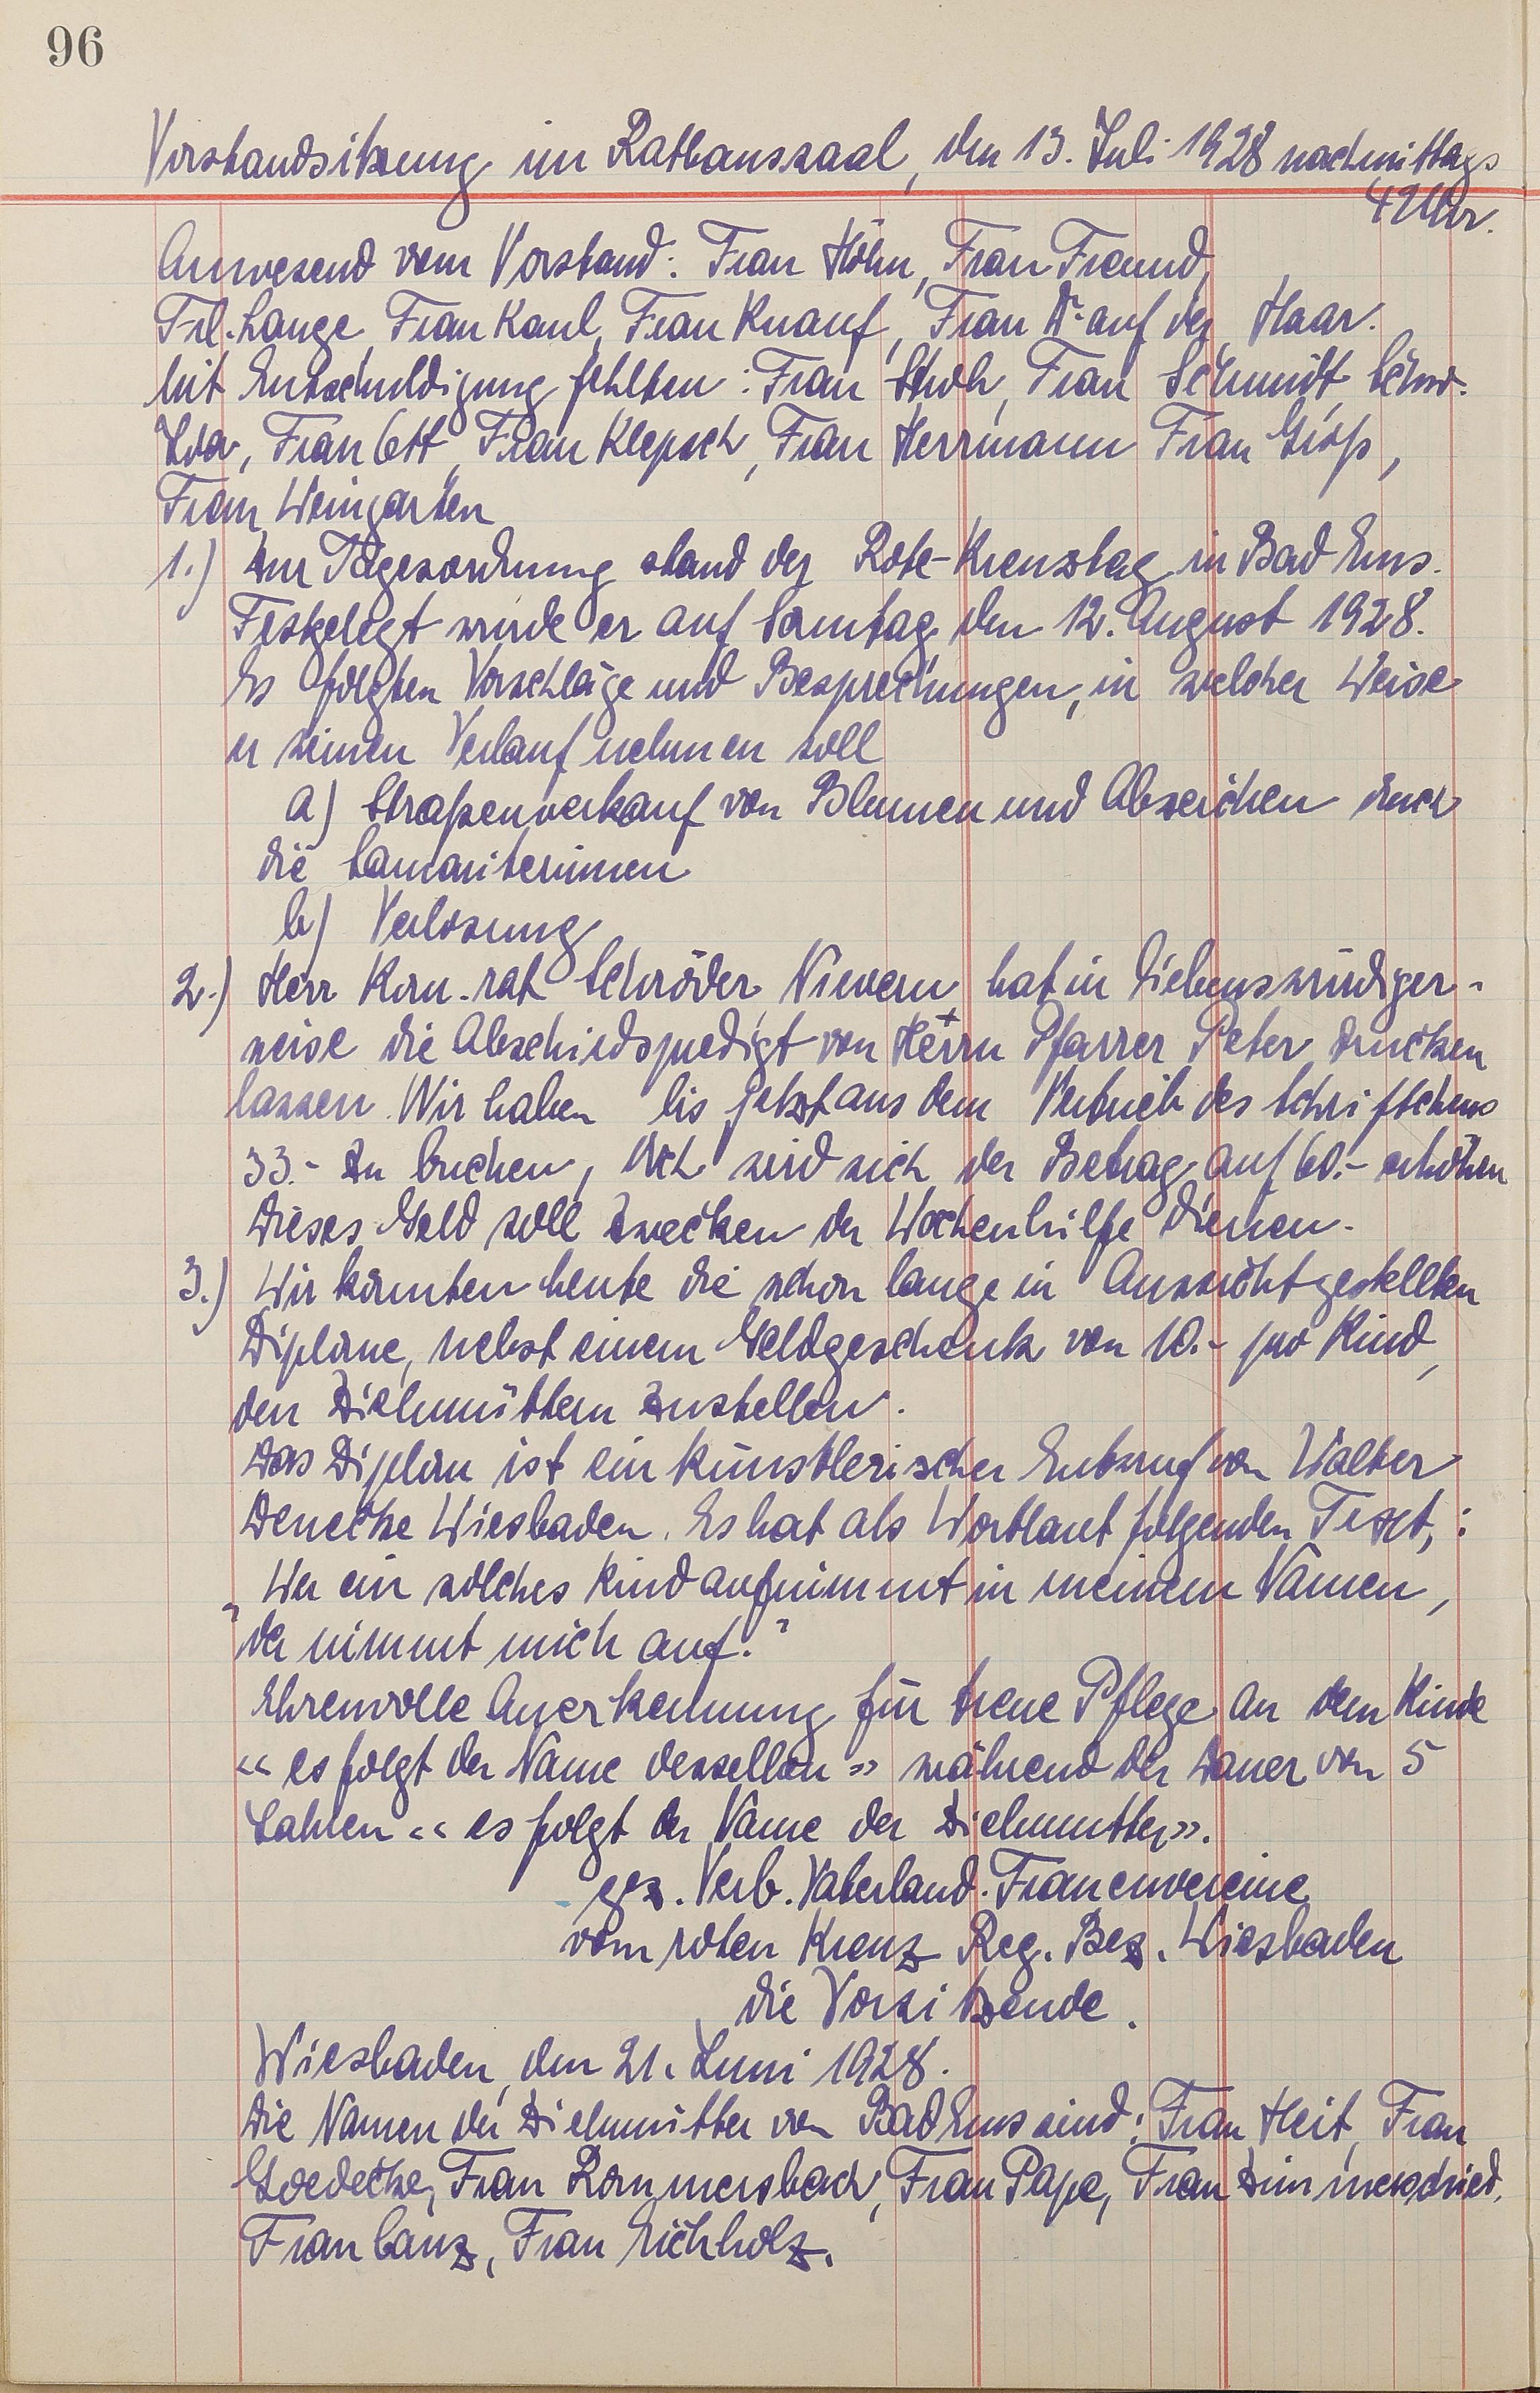 96
Vorstandsitzung im Rathaussaal, den 13. Juli 1928 nachmittags
4 Uhr.
Anwesend vom Vorstand: Frau Höhn, Frau Freund,
Frl. Lange, Frau Kaul, Frau Knauf, Frau Dr. auf der Haar.
Mit Entschuldigung fehlten: Frau Stroh, Frau Schmidt, Schw.
Ida, Frau Ott, Frau Klepsch, Frau Herrmann Frau Groß,
Frau Weingarten
1.) Zur Tagesordnung stand der Rote-Kreuztag in Bad Ems.
Festgelegt wurde er auf Sonntag den 12. August 1928.
Es folgten Vorschläge und Besprechungen, in welcher Weise
er seinen Verlauf nehmen soll
a) Straßenverkauf von Blumen und Abzeichen durch
die Samariterinnen
b) Verlosung
2.) Herr Kom.-rat Schröder Nievern hat in liebenswürdiger-
weise die Abschiedspredigt von Herrn Pfarrer Peter drucken
lassen. Wir haben bis jetzt aus dem Vertrieb des Schriftchens
33.- zu buchen, doch wird sich der Betrag auf 60.- erhöhen
Dieses Geld soll Zwecken der Wochenhilfe dienen.
3.) Wir konnten heute die schon lange in Aussicht gestellten
Diplome, nebst einem Geldgeschenk von 10.- pro Kind,
den Ziehmüttern zustellen.
Das Diplom ist ein künstlerischer Entwurf von Walter
Denecke Wiesbaden. Es hat als Wortlaut folgenden Text,:
„Wer ein solches Kind aufnimmt in meinem Namen,
der nimmt mich auf."
Ehrenvolle Anerkennung für treue Pflege an dem Kinde
« es folgt der Name desselben » während der Dauer von 5
Jahren « es folgt der Name der Ziehmutter».
gez. Verb. Vaterländ. Frauenvereine
vom roten Kreuz Reg. Bez. Wiesbaden
die Vorsitzende.
Wiesbaden, den 21. Juni 1928.
Die Namen der Ziehmütter von Bad Ems sind: Frau Heit, Frau
Goedecke, Frau Rommersbach, Frau Pape, Frau Zimmerschied,
Frau Canz, Frau Eichholz.